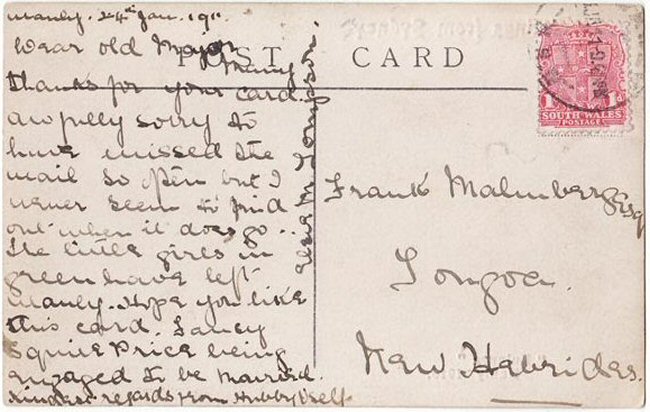 Manly. 24th Jan. 191
Dear old Major
Many
thanks for your card.
awfully sorry to
have missed the
mail so often but I
never seem to find
out when it does go..
The little girls in
green have left
Manly. Hope you like
this card. Fancy
Squire Price being
engaged to be married.
Kindest regards from Hubby & self.
POST CARD
1D 1D
SOUTH WALES
POSTAGE
Frank Malmberg Esq
Tongoa.
New Hebrides.